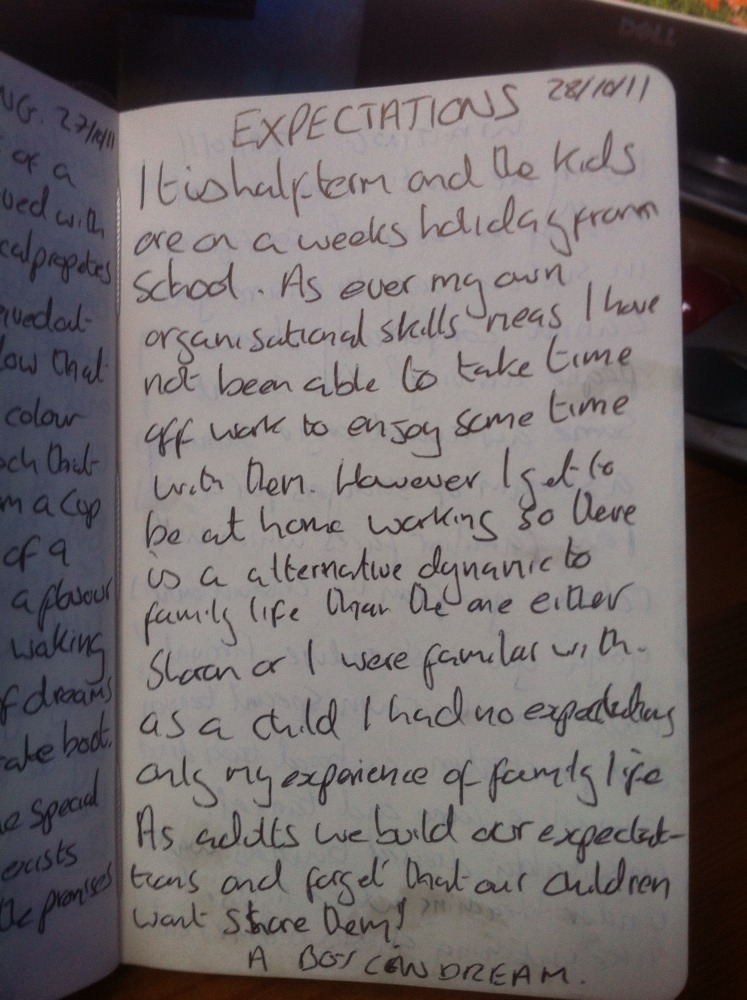 DELL
NG. 27/10/11
of a
ved with
cal propeties
ow that
colour
ch that
m a cup
of a
a flavour
waking
f dreams
ake boat.
e special
exists
the promises
EXPECTATIONS 28/10/11
It is half term and the kids
are on a weeks holiday from
School. As ever my own
organisational skills meas I have
not been able to take time
off work to enjoy some time
with them. However I get to
be at home working so there
is a alternative dynamic to
family life than the one either
Sharon or I were familar with.
as a child I had no expectations
only my experience of family life
As adults we build our expectat-
tions and forget that our children
wont share them!
A BOY CAN DREAM.